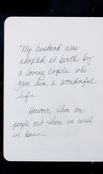 "My husband was
adopted at birth by
a loving couple who
gave him a wonderful
life.
However, there are
people out there in need
we know...